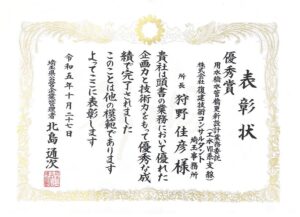 表彰状
優秀賞
用水橋水管橋更新設計業務委託
株式会社復建技術コンサルタント
埼玉事務所
所長 狩野佳彦様
貴社は頭書の業務において優れた
企画力と技術力をもって優秀な成
績で完了されました
このことは他の模範であります
よってここに表彰します
令和五年十月二十七日
埼玉県公営企業管理者 北島通次